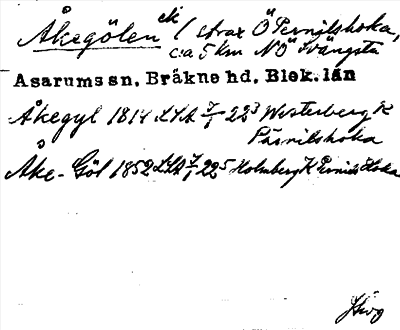 Åkegölen ek ( strax Ö Pernilshoka,
c:a 5 km NÖ Svängsta
Asarums sn. Bräkne hd. Blek. län
Åkegyl 1814 LSA 7/1 22³ Westerberg K
Pärnilshoka
Åke-Göl 1852 LSA 7/1 22⁵ Holmberg K Pernils Hoka